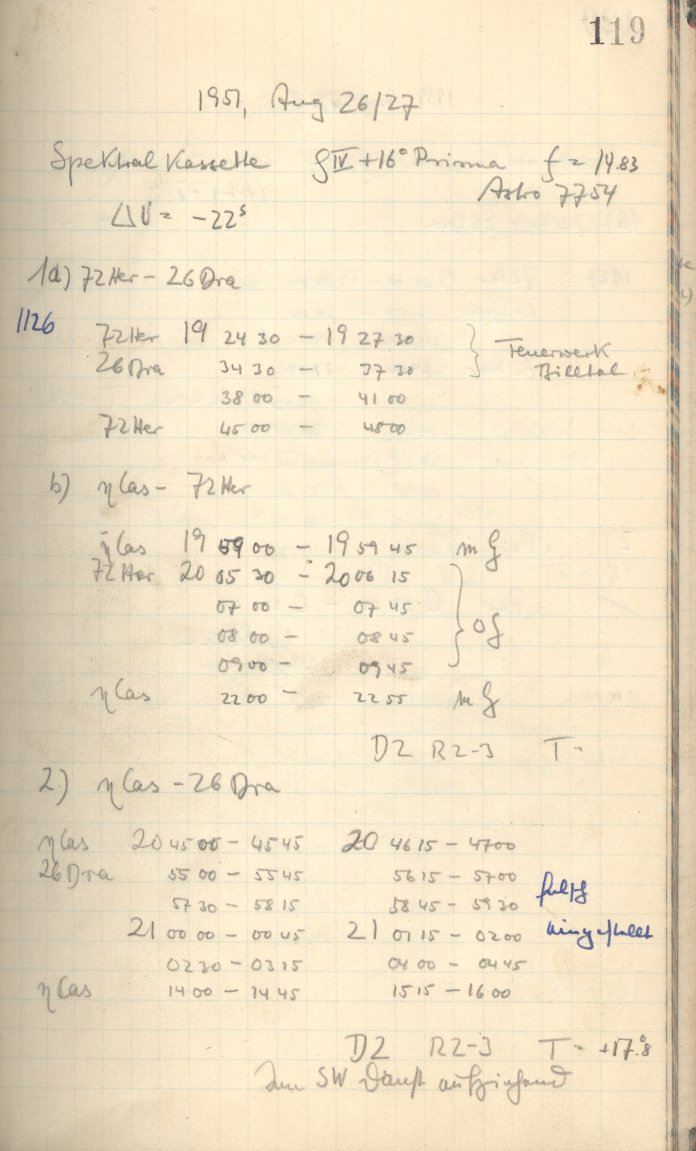 119
1951, Aug 26/27
Spektral Kassette g IV + 16° Prisma f = 14.83
Astro 7754
ΔU = -22s
1a) 72 Her - 26 Dra
1126
72 Her 19 24 30 - 19 27 30 } Feuerwerk
26 Dra 34 30 - 37 30 Billtal
38 00 - 41 00
72 Her 45 00 - 48 00
b) η Cas - 72 Her
η Cas 19 59 00 - 19 59 45 m G
72 Her 20 05 30 - 20 06 15
07 00 - 07 45
08 00 - 08 45 } o G
09 00 - 09 45
η Cas 22 00 - 22 55 m G
D2 R2-3 T =
2.) η Cas - 26 Dra
η Cas 20 45 00 - 45 45 20 46 15 - 47 00
26 Dra 55 00 - 55 45 56 15 - 57 00 falsch
57 30 - 58 15 58 45 - 59 30
21 00 00 - 00 45 21 01 15 - 02 00 eingestellt
02 30 - 03 15 04 00 - 04 45
η Cas 14 00 - 14 45 15 15 - 16 00
D2 R2-3 T = +17.°8
Im SW Dunst aufziehend